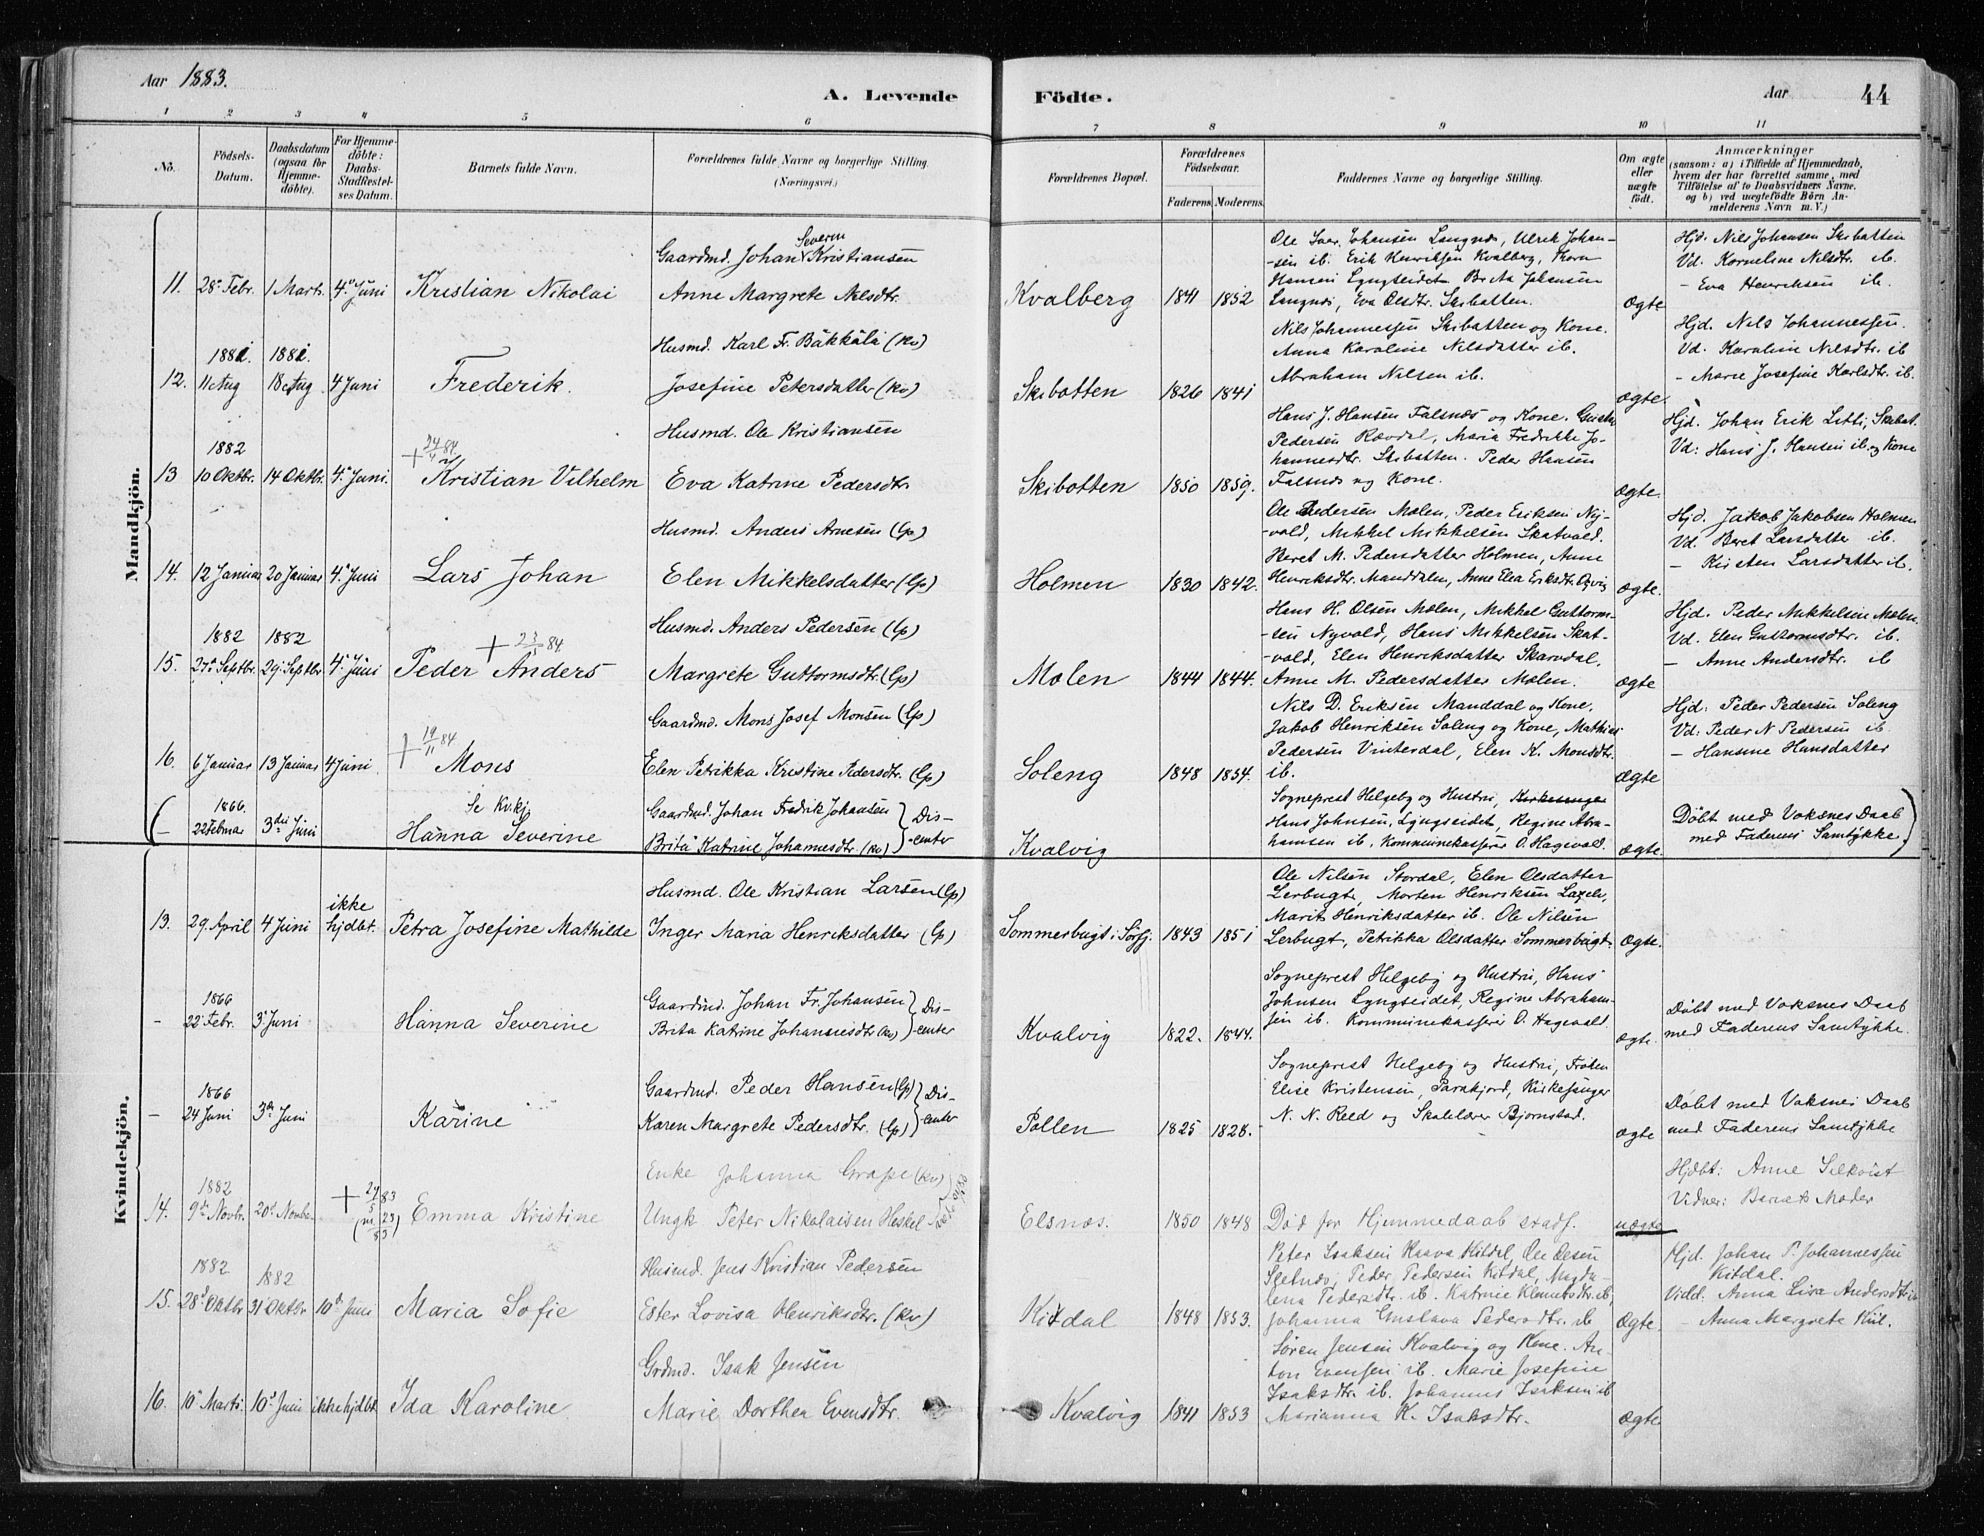 Aar 1883.
A. Levende Födte.
Aar 44
1 2 3 4 5 6 7 8 9 10 11
No.
Födsels-Datum.
Daabsdatum (ogsaa for Hjemme-döbte).
For Hjemme-döbte: Daabs-Stadfæstelses Datum.
Barnets fulde Navn.
Forældrenes fulde Navne og borgerlige Stilling. (Næringsvei.)
Forældrenes Bopæl.
Forældrenes Födselsaar.
Faderens. Moderens.
Faddernes Navne og borgerlige Stilling.
Om ægte eller uægte födt.
Anmærkninger
(saasom: a) i Tilfælde af Hjemmedaab, hvem der har forrettet samme, med Tilföielse af to Daabsvidners Navne, og b) ved uægtefödte Börn Anmelderens Navn m. V.)
Mandkjön.
11. 28de Febr. 1 Marts. 4de Juni Kristian Nikolai
Gaardmd. Johan Severin Kristiansen
Anne Margrete Nilsdtr.
Kvalberg 1841 1852
Ole Iver Johansen Langnes, Ulrik Johan-
-sen ib. Erik Henriksen Kvalberg, Korn
Hansen Lyngseidet Berta Johansen
Langnes, Eva Olsdtr. Skibotten.
Ægte
Hjd. Nils Johansen Skibotten
Vd. Korneline Nilsdtr. ib.
- Eva Henriksen ib.
12. 1881 11 Aug 1881. 18 Aug 4 Juni Frederik.
Husmd. Karl Fr. Bäkkälä (kv)
Josefine Petersdatter (kv)
Skibotten 1826 1841
Nils Johannessen Skibotten og Kone.
Anna Karoline Nilsdatter ib.
Abraham Nilsen ib.
Ægte
Hjd. Nils Johannessen.
Vd. Karoline Nilsdtr. ib
- Marie Josefine Karlsdtr. ib.
13 1882 10 Oktbr. 14 Oktbr. 4de Juni. + 24/4 84 Kristian Vilhelm
Husmd. Ole Kristiansen
Eva Katrine Pedersdtr.
Skibotten 1850 1859.
Hans J. Hansen Falsnes og Kone.
Pedersen Rævdal, Maria Fredrikke Jo-
hannesdtr. Skibotten. Peder Hansen
Falsnes og Kone.
Ægte.
Hjd. Johan Erik Litti, Skibot.
Vd: Hans J. Hansen ib. og Kone
14. 12 Januar 20 Januar 4de Juni Lars Johan
Husmd. Anders Arnesen (lp)
Elen Mikkelsdatter (lp)
Holmen 1830 1842.
Ole Pedersen Molen, Peder Eriksen Ny-
-vold, Mikkel Mikkelsen Skatvold.
Beret M. Pedersdatter Holmen, Anne
Henriksdtr. Manddalen, Anne Elea Eriksdtr.
Ægte.
Hjd. Jakob Jakobsen Holmen
Vd. Beret Larsdatter ib.
- Kirsten Larsdatter ib.
15. 1882 27de Septbr. 1882 29 Septbr 4de Juni Peder Anders + 23/1 84
Husmd. Anders Pedersen (lp)
Margrete Guttormsdtr. (lp)
Molen 1844 1844.
Hans H. Olsen Molen, Mikkel Guttorm-
-sen Nyvold, Hans Mikkelsen Skat-
-vold, Elen Henriksdatter Skarvdal,
Anne M. Pedersdatter Molen.
Ægte
Hjd. Peder Mikkelsen Molen
Vd. Elen Guttormsdtr. ib.
- Anne Andersdtr. ib
16. 6 Januar 13 Januar 4 Juni + 19/11 84 Mons
Gaardmd. Mons Josef Monsen (lp)
Elen Petrikka Kristine Pedersdtr. (lp)
Soleng 1848 1854.
Nils D. Eriksen Manddal og Kone,
Jakob Henriksen Soleng og Kone, Mathias
Pedersen Vinterdal, Elen K. Monsdtr.
ib.
Ægte
Hjd: Peder Pedersen Soleng
Vd: Peder N Pedersen ib.
- Hansine Hansdatter
( - 1866. 22 Februar 3die Juni Se Kv.kj. Hanna Severine
Gaardmd. Johan Fredrik Johansen } Dis-
Brita Katrine Johannesdtr. (kv) } -center
Kvalvig
Sogneprest Helgeby og Hustru, Kirkesanger
Hans Johnsen, Lyngseidet, Regine Abra-
hamsen ib. Kommunekasserer O. Hagevold.
Ægte.
Döbt med Voksnes Daab
med Faderens Samtykke )
Kvindekjön.
13. 29 April 4 Juni ikke hjdbt. Petra Josefine Mathilde
Husmd. Ole Kristian Larsen (lp)
Inger Maria Henriksdatter (lp)
Sommerbugt i Sörfj. 1843 1851
Ole Nilsen Stordal, Elen Olsdatter
Lerbugt, Morten Henriksen
Marit Henriksdatter ib. Ole Nilsen
Lerbugt, Petrikka Olsdatter Sommerbugt.
Ægte.
- 1866 22de Febr. 3de Juni Hanna Severine
Gaardmd. Johan Fr. Johansen } Dis-
Brita Katrine Johannesdtr (kv) } -center
Kvalvig 1822. 1844.
Sogneprest Helgeby og Hustru, Hans
Johnsen Lyngseidet, Regine Abraham-
sen ib. Kommunekasserer O. Hagevold
Ægte.
Döbt med Voksnes Daab
med Faderens Samtykke.
- 1866 24 Juni 3die Juni Karine
Gaardmd. Peder Hansen (lp) } Dis-
Karen Margrete Pedersdtr. (lp) } -center
Pollen 1825 1828.
Sogneprest Helgeby og Hustru, Fröken
Elise Kristensen, Parakjord, Kirkesanger
N. N. Reed og Skolelærer Bjornstad.
Ægte
Döbt med Voksnes Daab
med Faderens Samtykke
14. 1882 9de Novbr. 20de November + 24/5 83 Emma Kristine
Enke Johanna Grape (kv)
Ungk Peter Nikolaisen Heskel
Elsnæs. 1850 1848
Död för Hjemmedaab stadf.
uægte
Hjdbt: Anne Selkvist
Vidner: Barnets Moder
15. 1882 28de Oktbr 1882 31 Oktbr 10de Juni Maria Sofie
Husmd. Jens Kristian Pedersen
Ester Lovisa Henriksdtr. (kv)
Kitdal 1848 1853.
Peter Isaksen Haava Kitdal, Ole Olsen
Sletnes, Peder Pedersen Kitdal, Magda-
lena Pedersdtr. ib. Katrine Klemetsdtr. ib,
Johanna Gustava Pedersdtr. ib
Ægte.
Hjd. Johan P. Johannessen
Kitdal.
Vidd. Anna Lisa Andersdtr ib
- Anna Margrete Kiil.
16. 10de Marts. 10de Juni ikke hjdbt. Ida Karoline
Grdmd. Isak Jensen
Marie Dorthea Evensdtr.
Kvalvig 1841 1853
Sören Jensen Kvalvig og Kone. An-
ton Evensen ib. Marie Josefine
Isaksdtr. ib. Johannes Isaksen ib
Marianna K. Isaksdtr.
Ægte